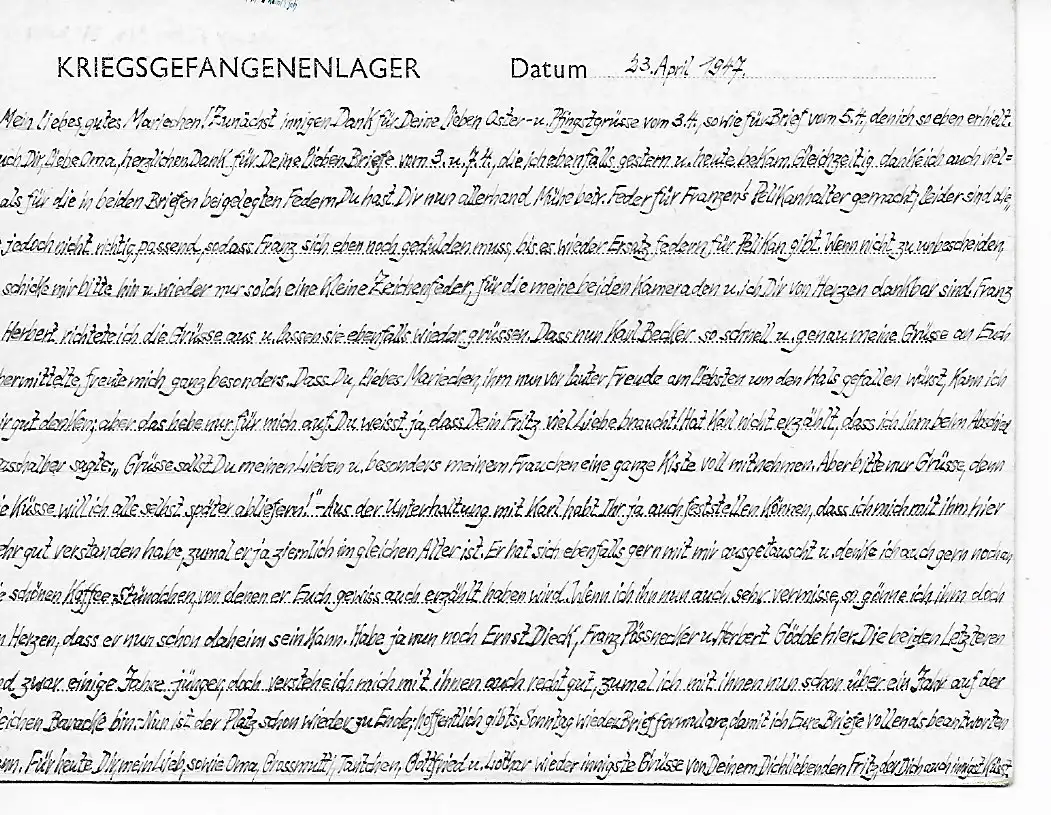 KRIEGSGEFANGENENLAGER Datum 23. April 1947.
Mein liebes, gutes Mariechen! Zunächst innigen Dank für Deine lieben Oster- u. Pfingstgrüsse vom 3.4., sowie für Brief vom 5.4., den ich so eben erhielt.
uch Dir, liebe Oma, herzlichen Dank für Deine lieben Briefe vom 3. u. 7.4., die ich ebenfalls gestern u. heute bekam. Gleichzeitig danke ich auch viel=
als für die in beiden Briefen beigelegten Federn. Du hast Dir nun allerhand Mühe betr. Feder für Franzens Pelikanhalter gemacht; leider sind alle
jedoch nicht richtig passend, sodass Franz sich eben noch gedulden muss, bis es wieder Ersatzfedern für Pelikan gibt. Wenn nicht zu unbescheiden,
schicke mir bitte hin u. wieder nur solch eine kleine Zeichenfeder, für die meine beiden Kameraden u. ich Dir von Herzen dankbar sind. Franz
Herbert richtete ich die Grüsse aus u. lassen sie ebenfalls wieder grüssen. Dass nun Karl Becker so schnell u. genau meine Grüsse an Euch
bermittelte, freute mich ganz besonders. Dass Du, liebes Mariechen, ihm nun vor lauter Freude am liebsten um den Hals gefallen wärst, kann ich
ir gut denken; aber das hebe nur für mich auf. Du weisst ja, dass Dein Fritz viel Liebe braucht! Hat Karl nicht erzählt, dass ich ihm beim Abschied
asshalber sagte: „Grüsse sollst Du meinen Lieben u. besonders meinem Frauchen eine ganze Kiste voll mitnehmen. Aber bitte nur Grüsse, denn
e Küsse will ich alle selbst später abliefern!" - Aus der Unterhaltung mit Karl habt Ihr ja auch feststellen können, dass ich mich mit ihm hier
ehr gut verstanden habe, zumal er ja ziemlich im gleichen Alter ist. Er hat sich ebenfalls gern mit mir ausgetauscht u. denke ich auch gern noch an
e schönen Kaffee-Stündchen, von denen er Euch gewiss auch erzählt haben wird. Wenn ich ihn nun auch sehr vermisse, so gönne ich ihm doch
n Herzen, dass er nun schon daheim sein kann. Habe ja nun noch Ernst Dieck, Franz Pössnecker u. Herbert Gödde hier. Die beiden Letzteren
nd zwar einige Jahre jünger, doch verstehe ich mich mit ihnen auch recht gut, zumal ich mit ihnen nun schon über ein Jahr auf der
eichen Baracke bin. Nun ist der Platz schon wieder zu Ende; hoffentlich gibt's Sonntag wieder Briefformulare, damit ich Eure Briefe vollends beantworten
ann. Für heute Dir, mein Lieb, sowie Oma, Grossmutti, Tantchen, Gottfried u. Lothar wieder innigste Grüsse von Deinem Dich liebenden Fritz, der Dich auch innigst küsst.